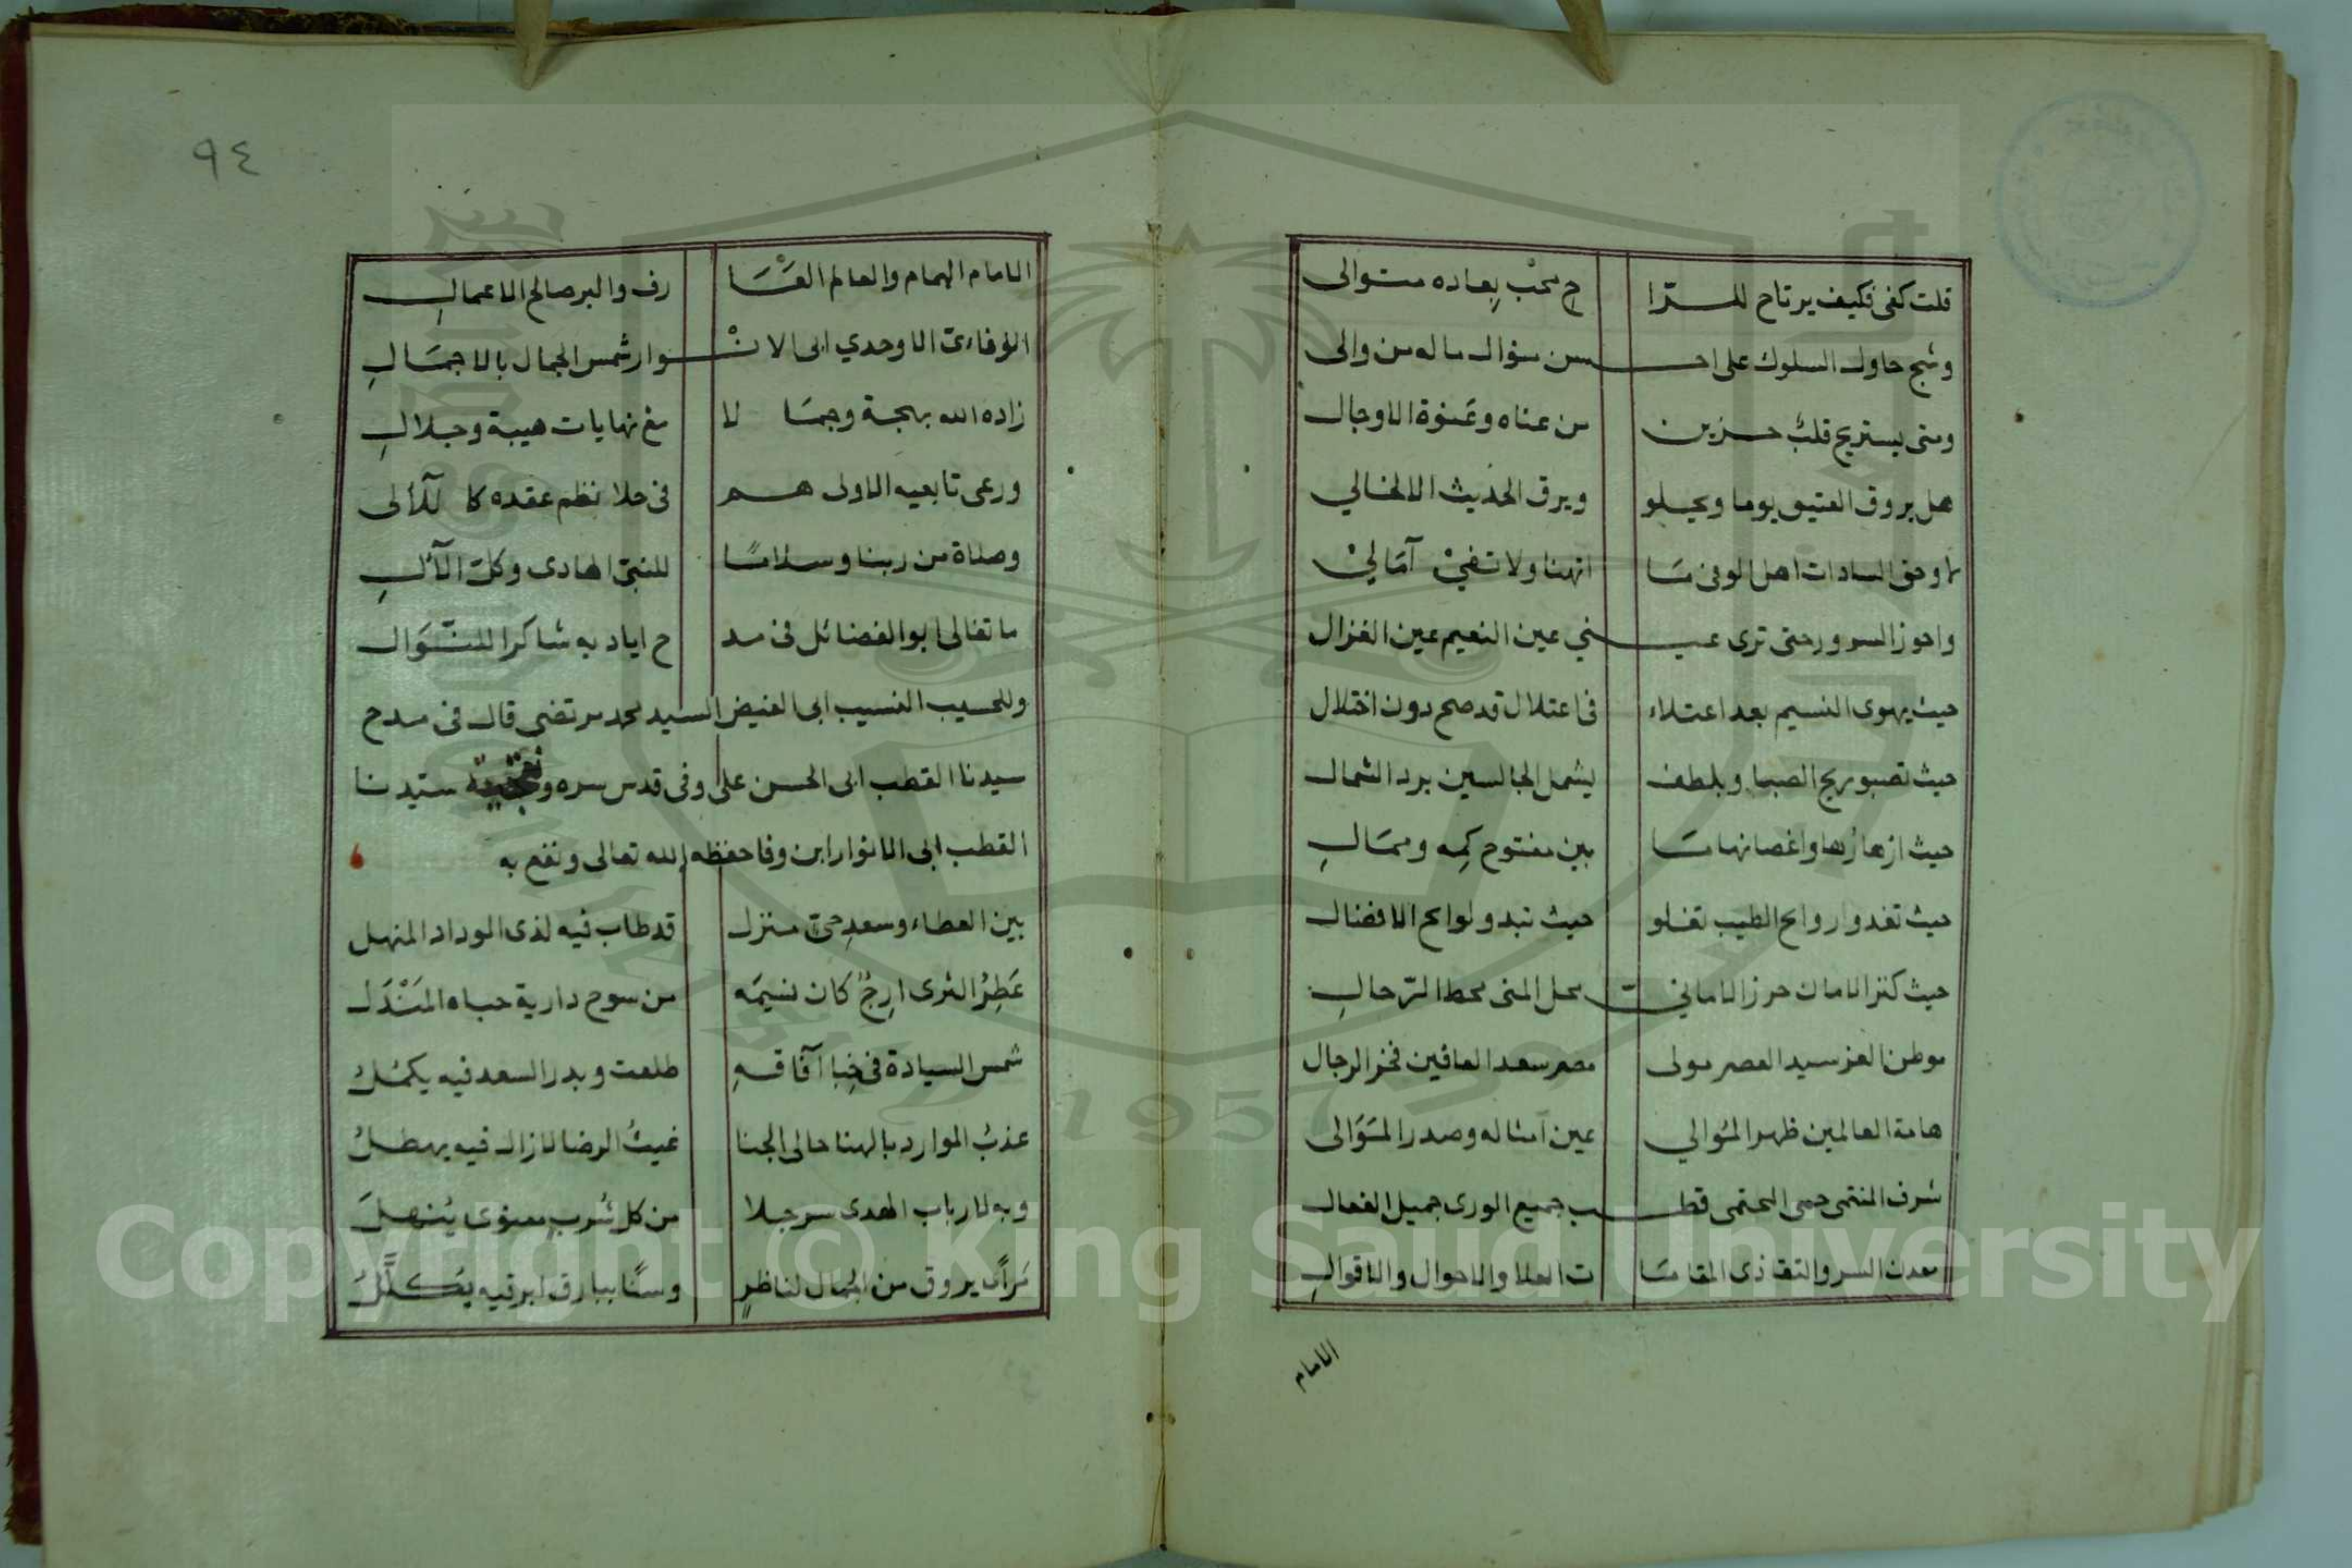 قلت كفى فكيف يرتاح للسترا ح محب بعاده متوالى
وشج حاول السلوك على احسن سؤال ماله من والى
ومتى يستريح قلبٌ حزين من عناه وعنوة الاوجال
هل يروق العتيق يوما ويحلو ويرق الحديث الالخالي
لا وحق السادات اهل الوفى مَا انهنا ولا تفيْ آمَاليْ
واحوز السرور حتى ترى عيني عين النعيم عين الغزال
حيث يهوى النسيم بعد اعتلاء فى اعتلال قد صح دون اختلال
حيث تصبو ريح الصبا وبلطف يشمل الجالسين برد الشمال
حيث ازهارُها واغصانها مَا بين مفتوح كِمه ومَمالِ
حيث تغدو اروايح الطيب تغلو حيث تبدو لوايح الافضال
حيث كنز الامان حرز الامانيّ محل المنى محط الرّحالِ
موطن العز سيد العصر مولى مصر سعد العافين فخر الرجال
هامة العالمين ظهر المُوالي عين امثاله وصدر المَوَالى
شرف المنتمى حمى المحتمى قطب جميع الورى جميل الفعال
معدن السر والتقا ذى المقامَا ت العلا والاحوال والاقوالِ
الامام
٩٤
الامام الهمام والعالم العَا رف والبر صالح الاعمالِ
الوفاءىّ الاوحدي ابى الانْوار شمس الجمال بالاجمَالِ
زاده الله بهجة وجمَا لا مع نهايات هيبة وجلالِ
ورعى تابعيه الاولى هم فى حلا نظم عقده كا للآلى
وصلاة من ربنا وسلامًا للنبىّ الهادى وكل الآلِ
ما تغالى ابو الفضائل فى مد ح اياد به شاكرا للنَّوَال
وللحسيب النسيب ابى الفيض السيد محمد مرتضى قال فى مدح
سيدنا القطب ابى الحسن على وفى قدس سره سيدنا
القطب ابى الانوار ابن وفا حفظه الله تعالى ونفع به
بين العطاء وسعدِ حىّ منزل قد طاب فيه لذى الوداد المنهل
عَطِرُ الثرى ارِجٌ كان نسيمَه من سوح دارية حباه المَنْدَل
شمس السيادة فى خِبا آفاقهِ طلعت وبدر السعد فيه يكمُلُ
عذبُ الموارد بالهنا حالى الجنا غيثُ الرضا لا زال فيه يهطلُ
وبه لارباب الهدى سر جلا من كل شربٍ معنوى يُنهلَ
مَرأى يروق من الجمال لناظرٍ وسنًا ببارق ابرقيه يُكلَّلُ
Copyright © King Saud University
1957